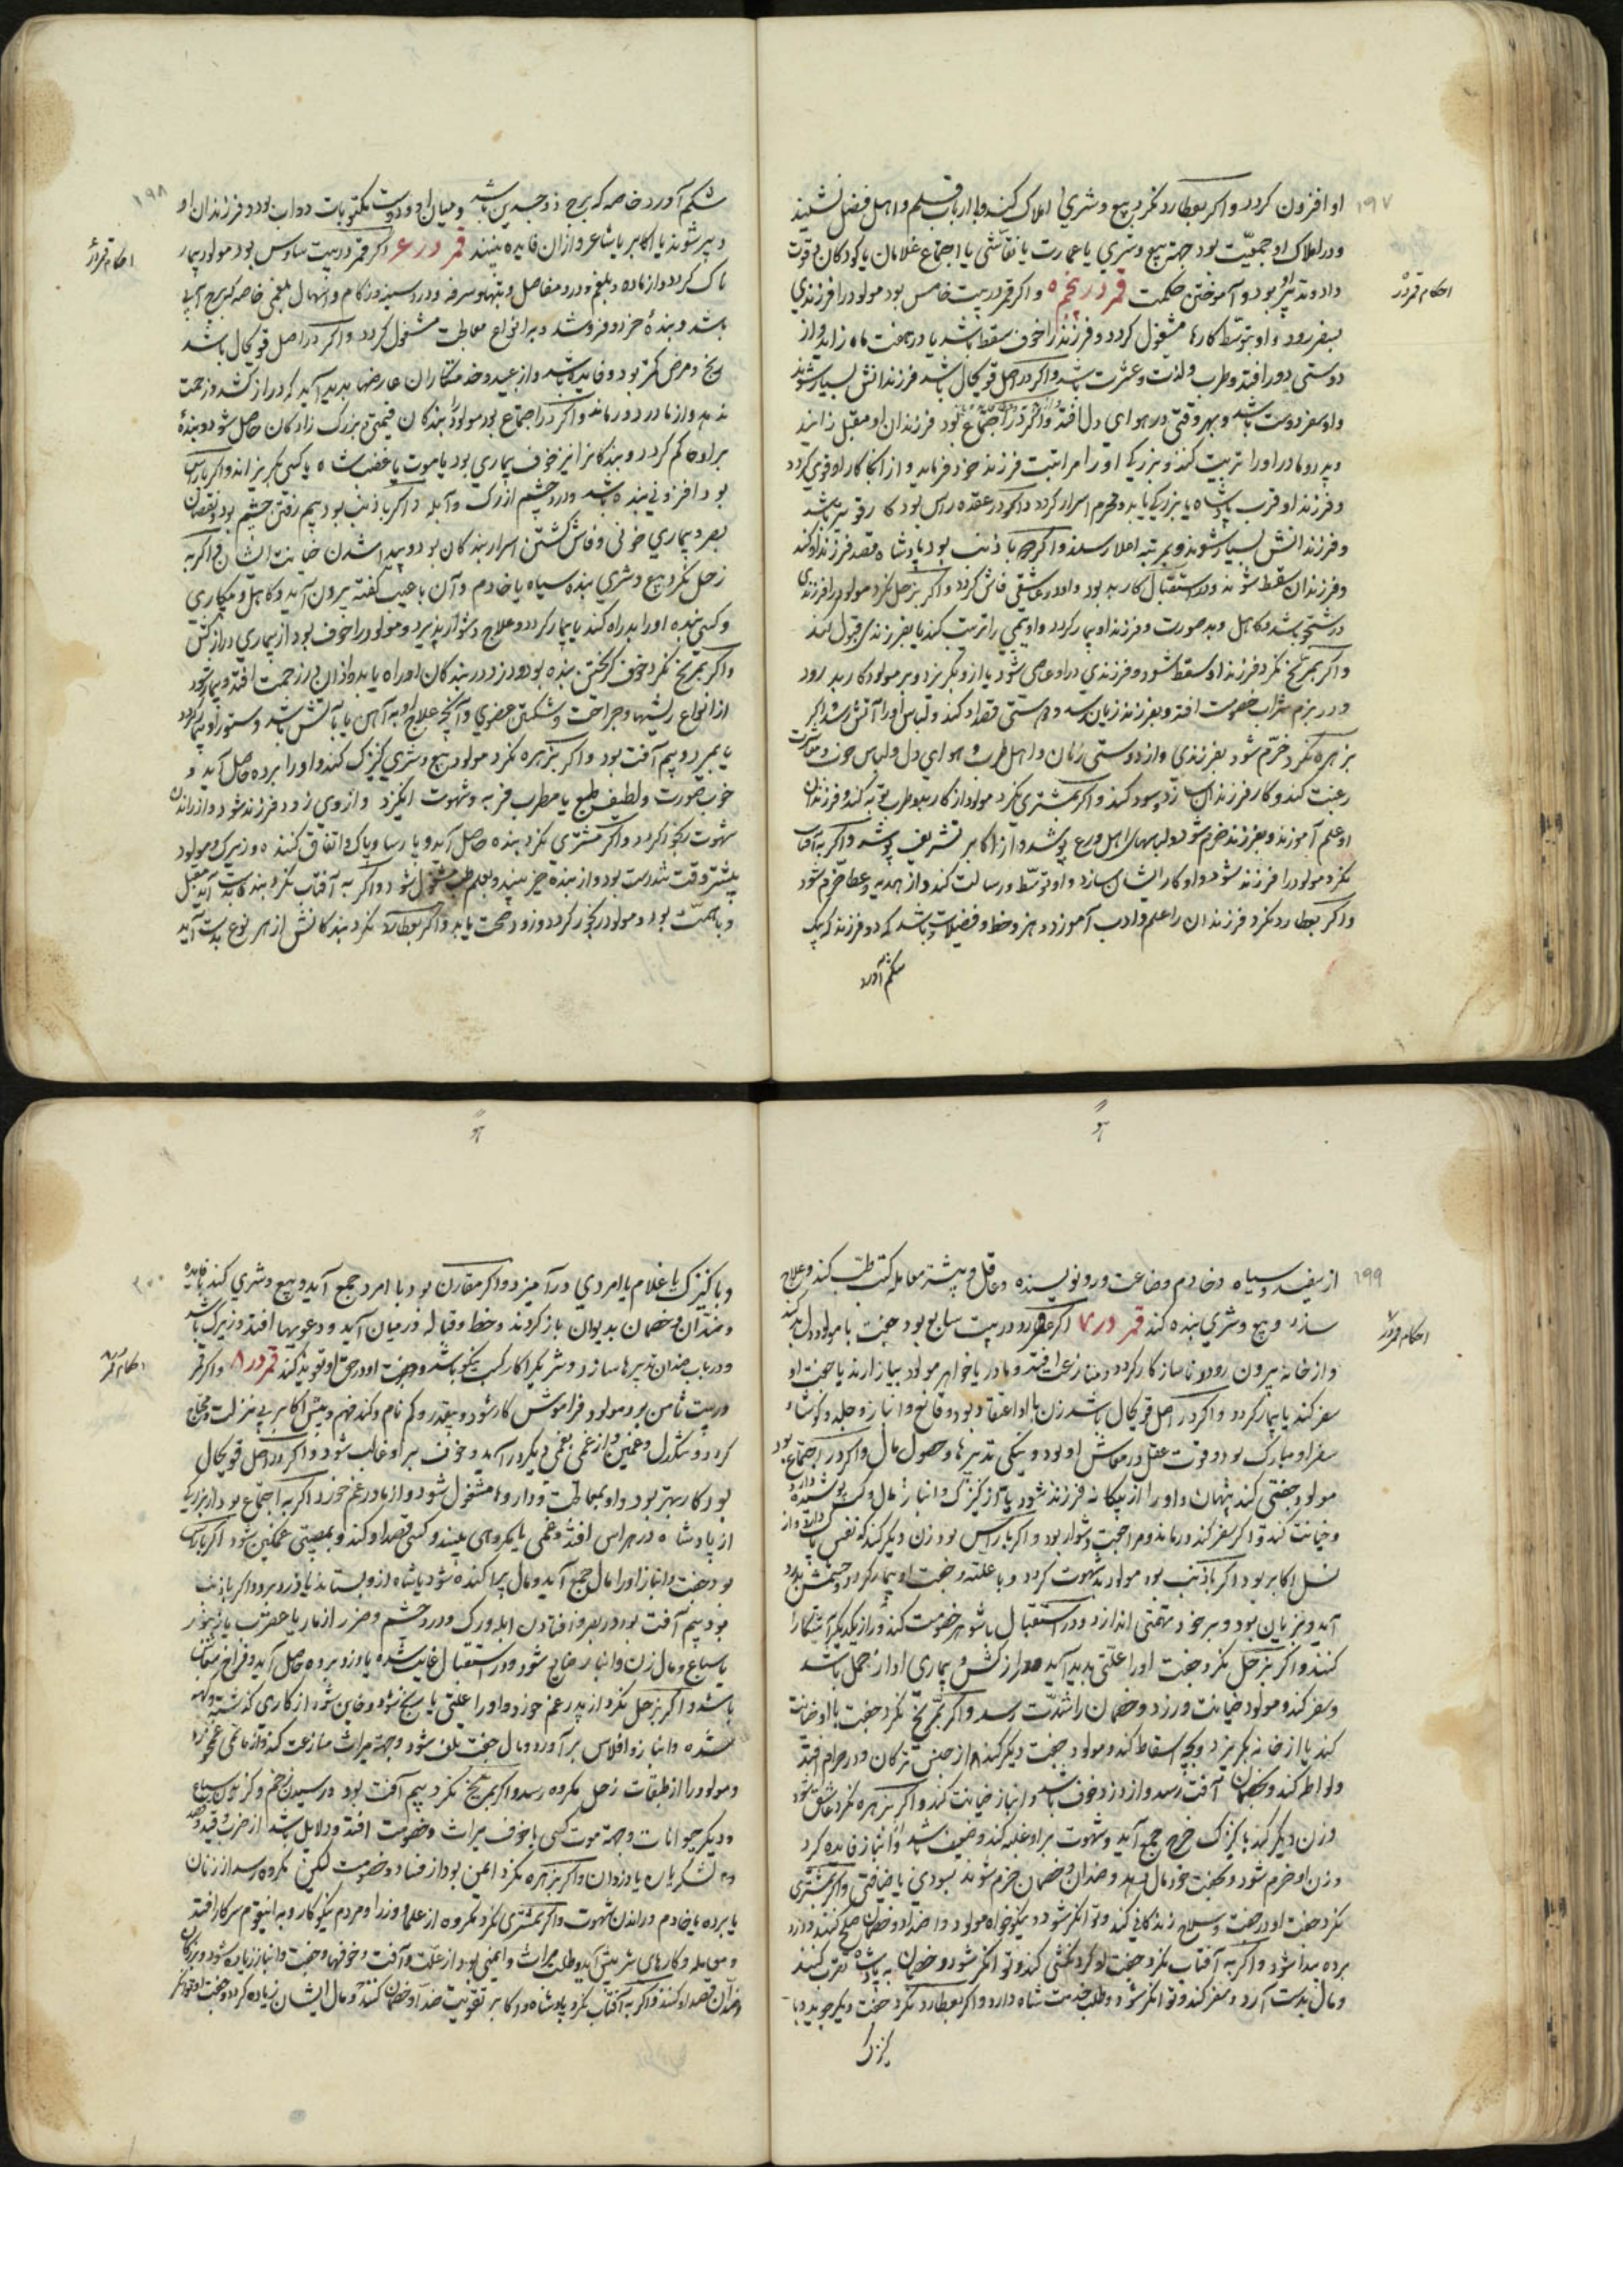 ۱۹۷
او افزون کردد و اکر بعطارد نکرد بیع و شری املاک کند و با ارباب قلم و اهل فضل نشیند
و در املاک او جمعیت بود جهة بیع و شری یا عمارت یا نقاشی یا اجتماع غلامان یا کودکان و قوت
داد و تدبیر بود و آموختن حکمت قمر در پنجم ۵ و اکر قمر در بیت خامس بود مولود را فرزندی
بسفر رود و او بتوسط کارها مشغول کردد و فرزند را خوف سقط باشد یا در هفت ماه زاید و از
دوستی دور افتد و طرب و لذت و عشرت باشد و اکر در اصل قوی حال باشد فرزندانش بسیار شوند
و او سفر دوست باشد و بهر وقتی در هوای دل افتد و اکر در اجتماع بود فرزندان او مقبل زایند
و پدر و مادر او را تربیت کنند و بزرکی او را مراتبت فرزند خود فرماید و از آنجا کار او قوی کردد
و فرزند او قرب پادشاه یا بزرکی یابد و محرم اسرار کردد و اکر در عقده راس بود کار قوی تر باشد
و فرزندانش بسیار شوند و بمرتبه اعلا رسند و اکر با ذنب بود پادشاه قصد فرزند او کند
و فرزندان سقط شوند و در استقبال کار بد بود و او در عاشقی فاش کردد و اکر بزحل نکرد مولود را فرزندی
درشت خو باشد و کاهل و بد صورت و فرزند او بیمار کردد و او یتیمی را تربیت کند یا بفرزندی قبول کند
و اکر بمریخ نکرد فرزند او سقط شود و فرزندی در او عاصی شود یا از و بکریزد و بر مولود کار بد رود
و در بزم شراب خصومت افتد و بفرزند زیان رسد و دوستی قصد او کند و لباس او را آتش رسد و اکر
بزهره نکرد خرم شود بفرزندی و از دوستی زنان و اهل طرب و هوای دل و لباس خوب و معاشرت
رغبت کند و کار فرزندان سازد و سود کند و اکر بمشتری نکرد مولود از کار بد و طرب توبه کند و فرزندان
او علم آموزند و بفرزند خرم شود و لباسهای اهل ورع پوشد و از اکابر تشریف پوشد و اکر بآفتاب
نکرد مولود را فرزند شود و او کار ایشان سازد و او توسط و رسالت کند و از هدیه و عطا خرم شود
و اکر بعطارد نکرد فرزندان را علم و ادب آموزد و هنر و خط و فضیلت باشد که دو فرزند که بیک
شکم آورد
احکام قمر در ۵
۱۹۸
شکم آورد خاصه که برج ذو جسدین باشد و میان او و دوست مکتوبات دواب بود و فرزندان او
دبیر شوند یا اکابر یا شاعر و از ان فایده بینند قمر در ۶ اکر قمر در بیت سادس بود مولود بیمار
ناک کردد و از ماده و بلغم و درد مفاصل و تبها و سرفه و درد سینه و زکام و اسهال بلغمی خاصه که برج آبی
باشد و بنده خرد و فروشد و به انواع معاملت مشغول کردد و اکر در اصل قوی حال باشد
رنج و مرض کمتر بود و فایده باشد و از عبید و خدمتکاران عارضها پدید آید که دراز کشد و زحمت
ندهد و از مادر دور ماند و اکر در اجتماع بود مولود را بندکان قیمتی و بزرک زادکان حاصل شود و بنده
بر او حاکم کردد و بندکانرا نیز خوف بیماری بود یا موت یا غضب شاه یا کسی بکریزاند و اکر با راس
بود افزونی بنده باشد و درد چشم از رک و آبله و اکر با ذنب بود بیم رفتن چشم بود و نقصان
بصر و بیماری خونی و فاش کشتن اسرار بندکان بود و پیدا شدن خیانت ایشان و اکر به
زحل نکرد بیع و شری بنده سیاه یا خادم و آن با عیب کفته بیرون آید و کاهل و بیکاری
و کسی بنده او را بد راه کند یا بیمار کردد و علاج دشوار پذیرد و مولود را خوف بود از بیماری دراز کش
و اکر بمریخ نکرد خوف کریختن بنده بود و دزد در بندکان او راه یابد و از ان در زحمت افتد و بیمار شود
از انواع ریشها و جراحت و شکستن عضوی و آنچه علاج او به آهن یا بآتش باشد و ستور او بیمار کردد
یا بمیرد و بیم آفت بود و اکر بزهره نکرد مولود بیع و شری کنیزک کند و او را برده حاصل آید و
خوب صورت و لطیف طبع یا مطرب فربه و شهوت انکیزد و از وی زود فرزند شود و از راندن
شهوت رنجور کردد و اکر بمشتری نکرد بنده حاصل آید و پارسا و پاک و اتفاق کننده و زیرک و مولود
بیشتر وقت تندرست بود و از بنده خیر بیند و بعلم طب مشغول شود و اکر به آفتاب نکرد بنده بدست آید مقبل
و با همت بود و مولود رنجور کردد و زود صحت یابد و اکر بعطارد نکرد بندکانش از هر نوع بدست آید
احکام قمر در ۶
۱۹۹
از سفید و سیاه و خادم و صناعت ور و نویسنده و عاقل و بیشتر معامله کتب طب کند و علاج
سازد و بیع و شری بنده کند قمر در ۷ اکر قمر در بیت سابع بود جفت با مولود دل بد کند
و از خانه بیرون رود و ناسازکار کردد و منازعت افتد و مادر یا خواهر مولود بیازارند یا جفت او
سفر کند یا بیمار کردد و اکر در اصل قوی حال باشد زن با او اعتقاد بود و قانع و انباز و جمله و کوشا و
سفر او مبارک بود و قوت عقل در معاش او بود و نیکی تدبیرها و حصول مال و اکر در اجتماع بود
مولود جفتی کند پنهان و او را از بیکانه فرزند شود یا از کنیزک و انباز مال و کسب پوشیده دارد
و خیانت کند و اکر سفر کند درماند و مراجعت دشوار بود و اکر با راس بود زن دیکر کند که نفس پاک دارد و از
نسل اکابر بود اکر با ذنب بود مولود بد شهوت کردد و با علت و جفت او بیمار کردد و چشمش بدرد
آید و بزیان بود و بر خود تهمتی اندازد و در استقبال با شوهر خصومت کند و راز یکدیکر آشکارا
کنند و اکر بزحل نکرد جفت او را علتی پدید آید دراز کش و بیماری او از حمل باشد
و سفر کند و مولود خیانت ورزد و خصمان را شدت رسد و اکر بمریخ نکرد جفت با او خیانت
کند یا از خانه بکریزد و بچه اسقاط کند و مولود جفت دیکر کند از جنس ترکان و در حرام افتد
و لواطه کند و بخصمان آفت رسد و از دزد خوف باشد و انباز خیانت کند و اکر بزهره نکرد عاشق شود
و زن دیکر کند یا کنیزک خرد جمع آید و شهوت بر او غلبه کند و ضعیف باشد و انباز فایده کرد
و زن او خرم شود و بجفت خود مال دهد و ضدان و خصمان خرم شوند بسودی یا ضیافتی و اکر بمشتری
نکرد جفت او در عفت و صلاح زندکانی کند و توانکر شود و نیکو خواه مولود و اضداد و خصمان صلح کنند و دزد
برده پیدا شود و اکر به آفتاب نکرد جفت او کردنکشی کند و توانکر شود و خصمان به پادشاه تقرب کنند
و مال بدست آرد و سفر کند و توانکر شود و طلب خدمت شاه دارد و اکر بعطارد نکرد جفت دیکر جوید و با
کنیزک
احکام قمر در ۷
۲۰۰
و با کنیزک یا غلام یا امردی درآمیزد و اکر مقارن بود با امرد جمع آید و بیع و شری کند با فایده
و ضدان و خصمان بدیوان باز کردند و خط و قباله در میان آید و دعویها افتد و زیرک باشد
و در باب ضدان تدبیرها سازد و شریکرا کار کسب نیکو باشد و جفت او در حق او تعویذ کند قمر در ۸ و اکر قمر
در بیت ثامن بود مولود فراموش کار شود و بیقدر و کم نام و کند فهم و پیش اکابر بی منزلت و محتاج
کردد و تنکدل و غمین و از غمی بغمی دیکر درآید و خوف بر او غالب شود و اکر در اصل قوی حال
بود کار بهتر بود و او بمعالجت و داروها مشغول شود و از مادر غم خورد اکر به اجتماع بود از بزرکی
از پادشاه در هراس افتد و غمی یا مکروهی بیند و کسی قصد او کند و بمصیبتی غمکین شود اکر با راس
بود جفت و انباز او را مال جمع آید و مال پراکنده شود یا شاه از و بستاند یا دزد برد و اکر با ذنب
بود بیم آفت بود در بصر و افتادن آبله و رک و درد چشم و ضرر از مار یا عقرب یا زنبور
یا سباع و مال زن و انباز ضایع شود و در استقبال غایب شده یا دزد برده حاصل آید و فراخ معاش
باشد و اکر بزحل نکرد از پدر غم خورد و او را علتی یا رنج شود و خاین شود از کاری کذشته و کهنه
شده و انباز و افلاس برآورد و مال جفت تلف شود و جهة میراث منازعت کند و از ماتمی غم خورد
و مولود را از طبقات زحل مکروه رسد و اکر بمریخ نکرد بیم آفت بود در رسیدن زخم و کزیدن سباع
و دیکر حیوانات و جهة موت کسی با خوف میراث و خصومت افتد و دلایل باشد از ضرب و قید و بند
و لشکریان یا دزدان و اکر بزهره نکرد ایمن بود از فساد و خصومت لیکن مکروه رسد از زنان
یا برده یا خادم و راندن شهوت و اکر بمشتری نکرد مکروه از علما و وزرا و مردم نیکو کار و به انقوم سر کار افتد
و معامله و کارهای شر پیش آید و طلب میراث و ایمنی بود از علت و آفت و خوفها و جفت و انباز زیاده شود و بزرکان
و ضدان قصد او کنند و اکر به آفتاب نکرد پادشاه و اکابر تقویت ضد او خصمان کنند و مال ایشان زیاده کردد و جفت او توانکر
احکام قمر در ۸